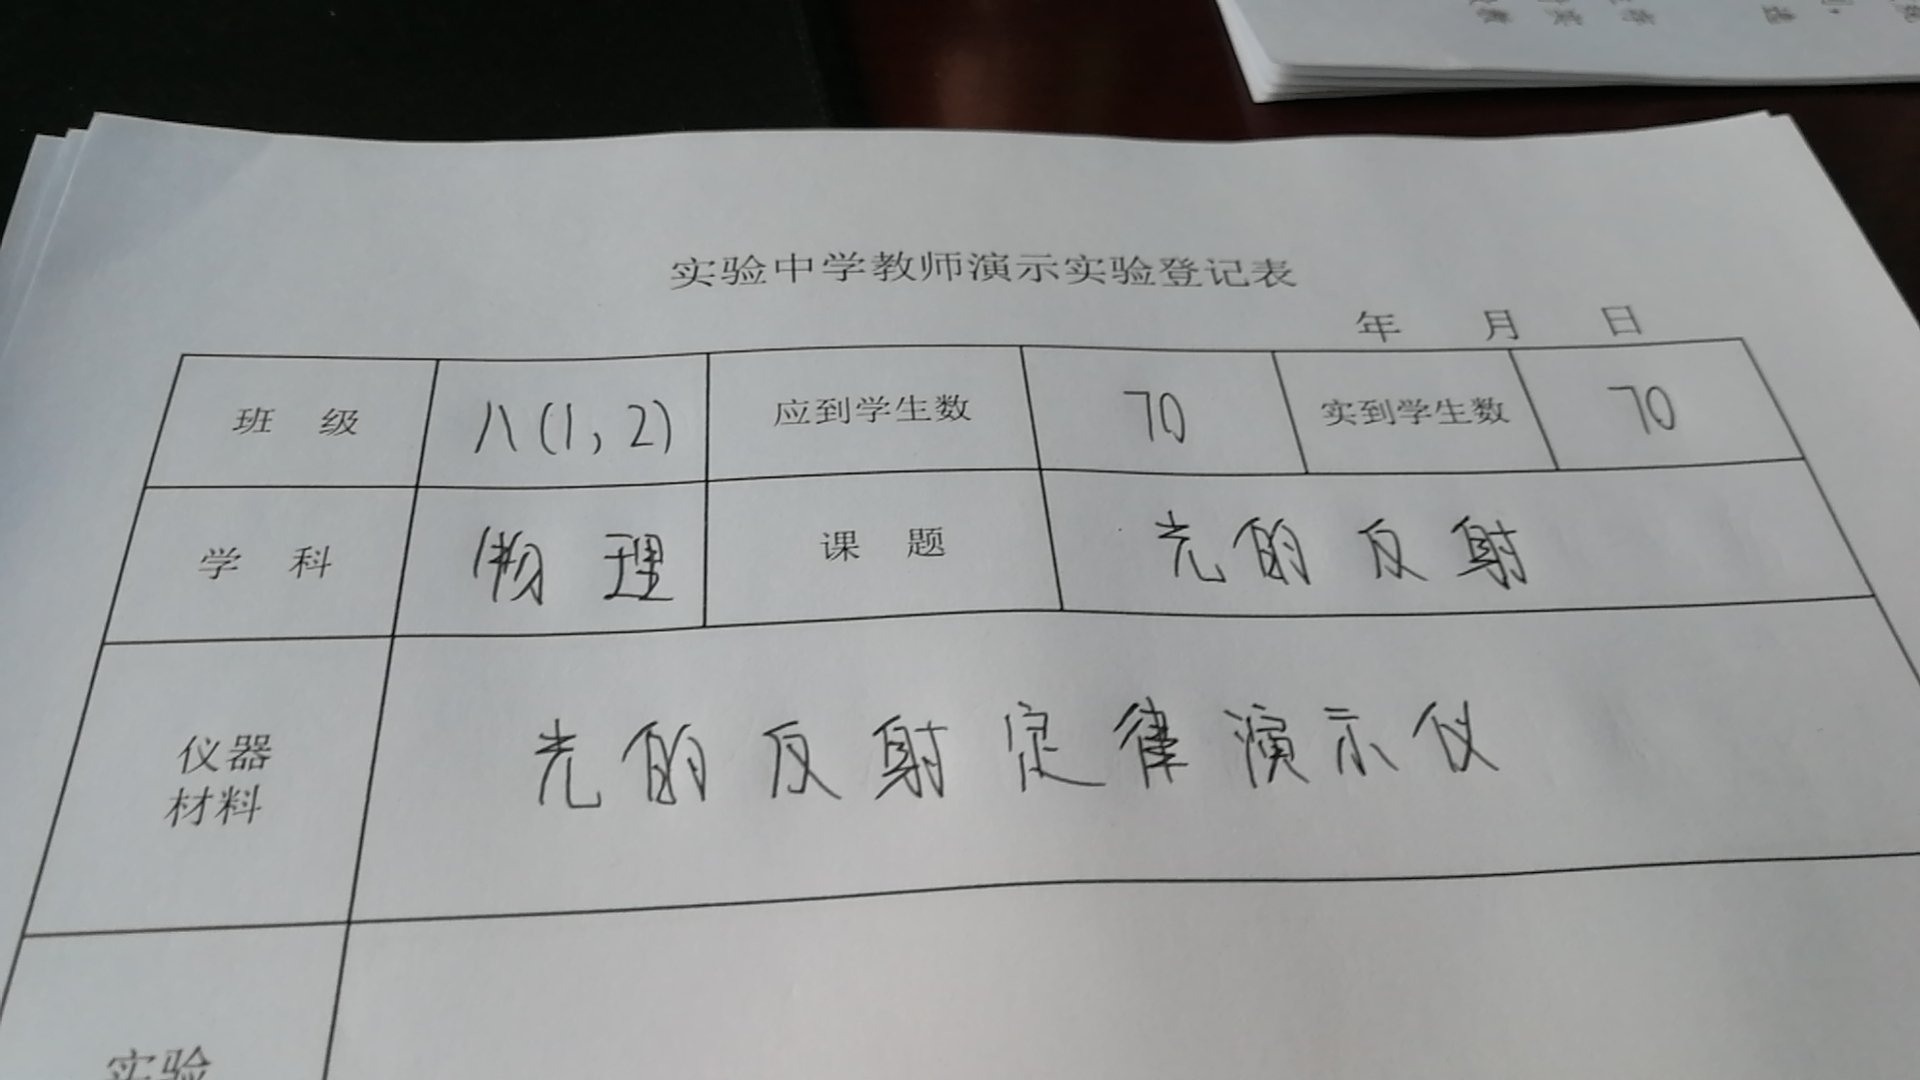 实验中学教师演示实验登记表
年 月 日
班 级 八(1,2) 应到学生数 70 实到学生数 70
学 科 物理 课 题 光的反射
仪器
材料 光的反射定律演示仪
实验